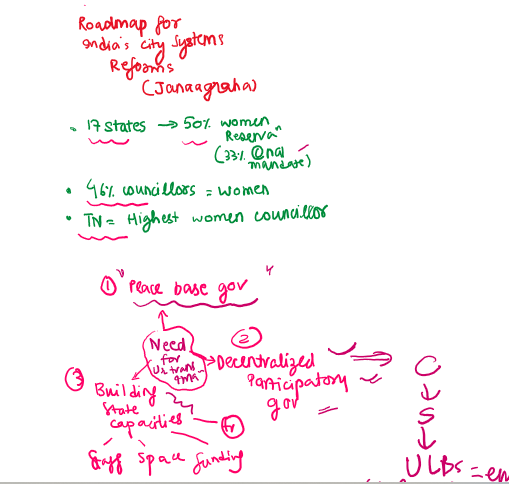 Roadmap for
India's city systems
Reforms
(Janaagraha)
• 17 states → 50% women
Reserva"
(33%
mandate)
• 46% councillors = women
• TN = Highest women councillor
① "Place base gov"
Need
for
②
→ Decentralized
Participatory
gov
③
Building
state
capacities
Staff space funding
C
↓
S
↓
ULBs = em